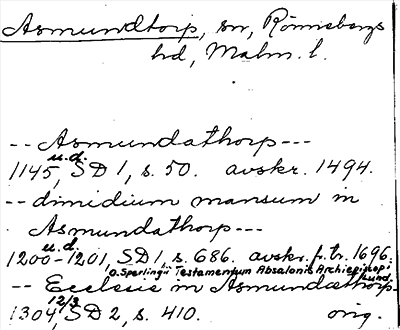 Asmundtorp, sn, Rönnebergs
hd, Malm. l.
-- Asmundathorp ---
u.d.
1145, SD 1, s. 50. avskr. 1494.
-- dimidium mansum in
Asmundathorp ---
u.d.
1200-1201, SD 1, s. 686. avskr. f. tr. 1696.
O. Sperlingii Testamentum Absalonis Archiepiscopi Lund.
-- Ecclesie in Asmundæthorp-
12/3
1304, SD 2, s. 410. orig.